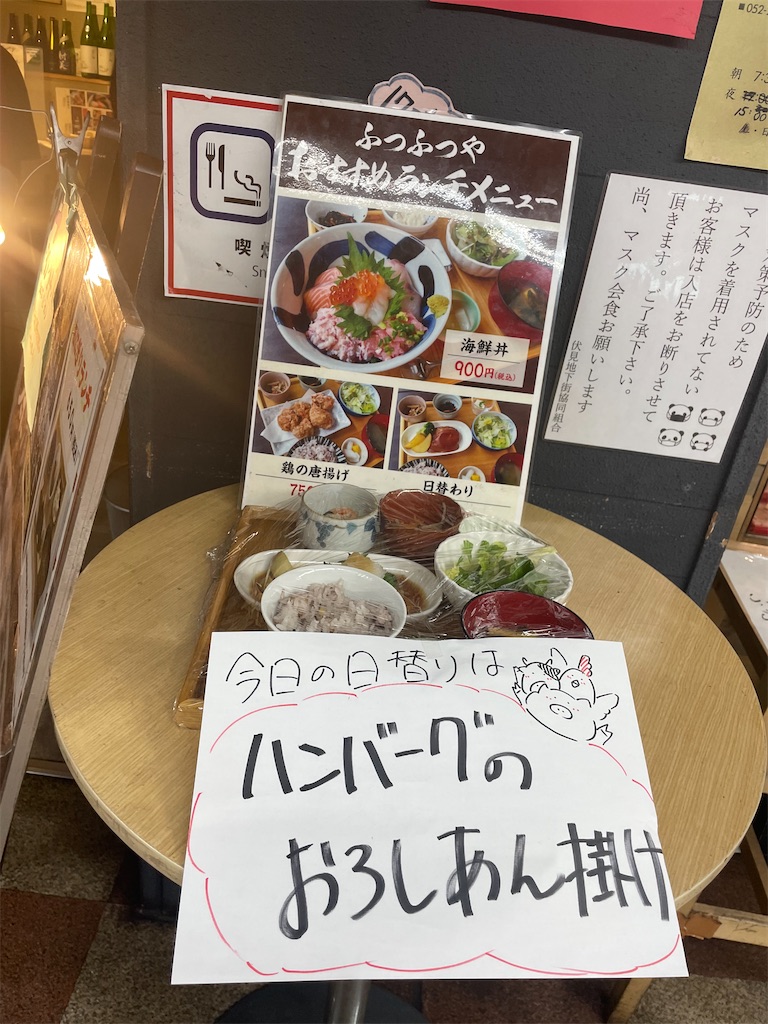 ふつふつや
おすすめランチメニュー
海鮮丼
900円(税込)
鶏の唐揚げ
75
日替わり
今日の日替りは
ハンバーグの
おろしあん掛け
喫
Sm
策予防のため
マスクを着用されてない
お客様は入店をお断りさせて
頂きます。ご了承下さい。
尚、マスク会食お願いします
伏見地下街協同組合
052-
朝 7:3
夜
15:00